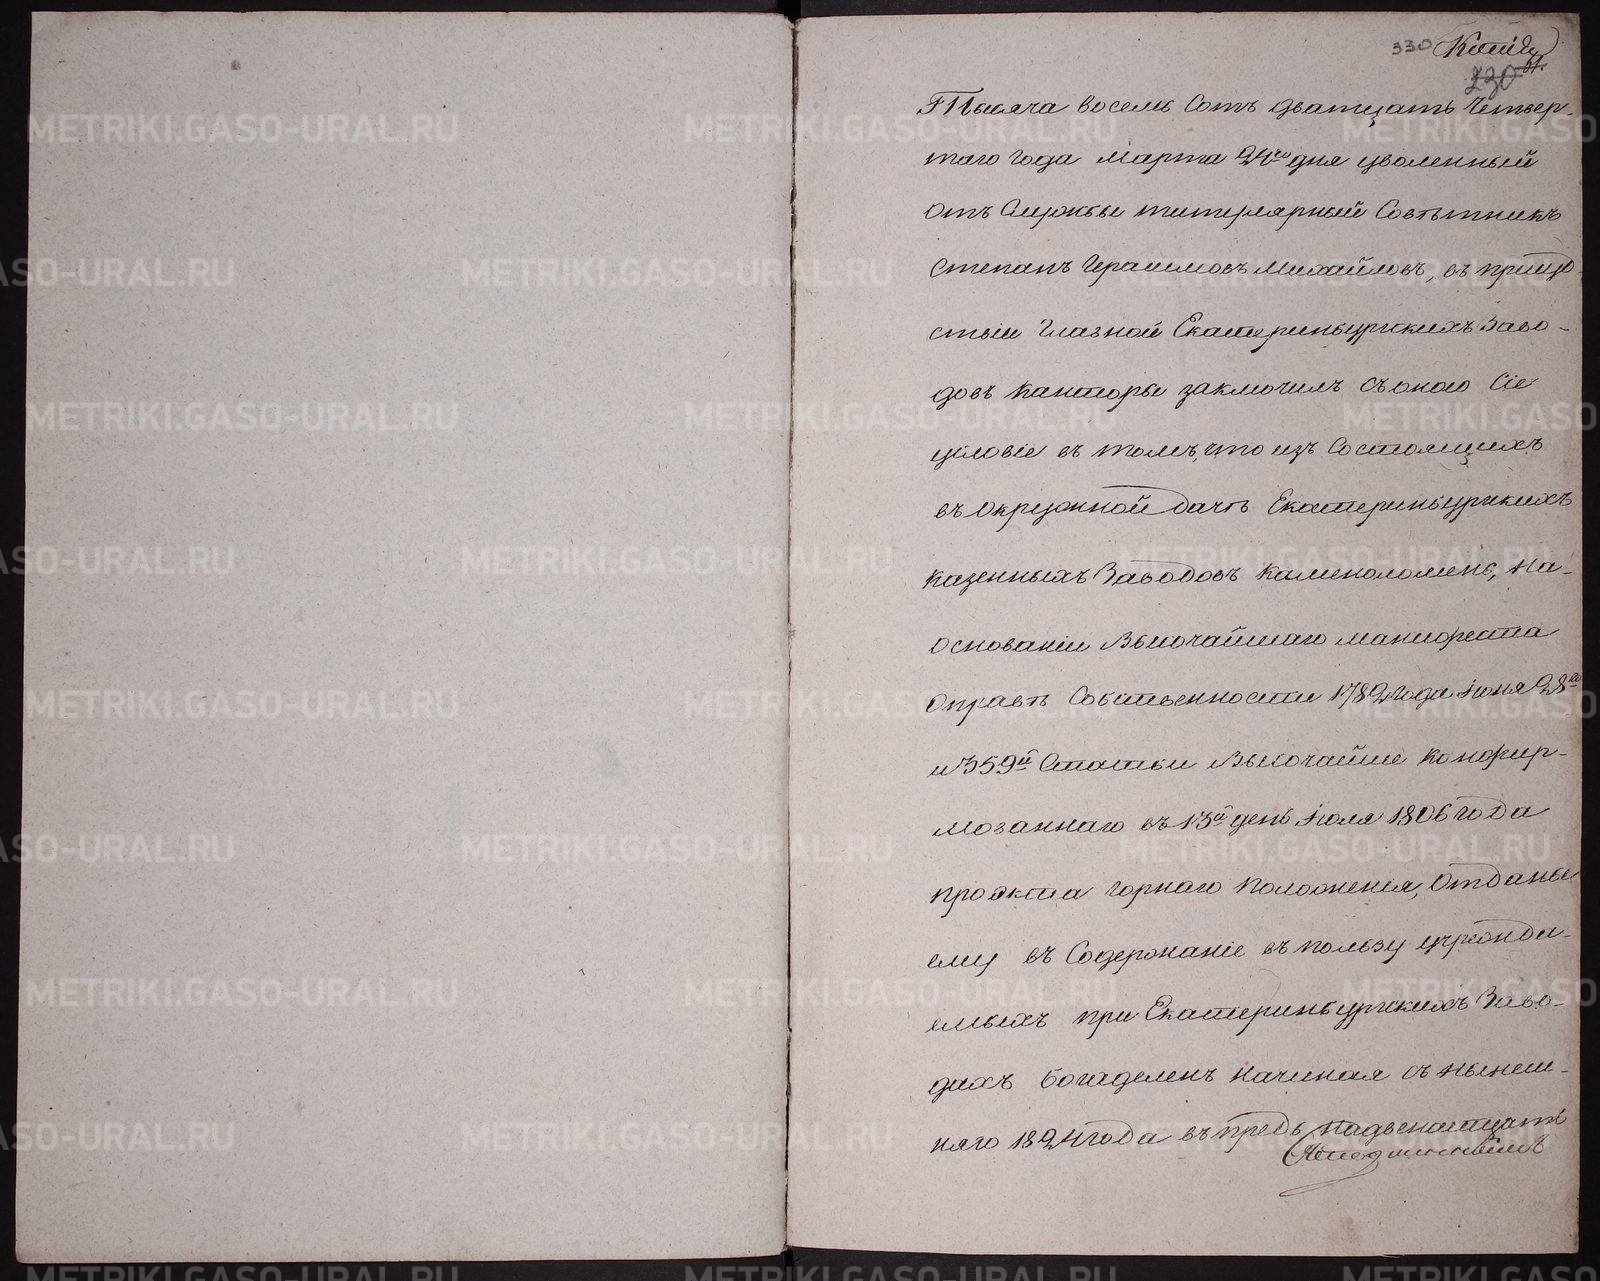 330 Копія
51.
230
Тысяча восемь сотъ дватцать четвер-
таго года марта 24го дня уволенный
отъ Службы титулярный Совѣтникъ
Степанъ Герасимовъ Михайловъ, въ присуд-
ствіи Главной Екатеринбургскихъ Заво-
довъ Канторы заключилъ съ оною сіе
условіе въ томъ, что изъ Состоящихъ
въ окружной дачѣ Екатеринбургскихъ
казенныхъ Заводовъ каменоломень, на-
основаніи Высочайшаго манифеста
о правѣ Собственности 1782 года іюня 28го
и 359й Статьи Высочайше конфир-
мованнаго въ 13й день іюля 1806 года
проэкта горнаго положенія, отданы
ему въ Содержаніе въ пользу учрежда-
емыхъ при Екатеринбургскихъ Заво-
дахъ богаделенъ начиная съ нынеш-
няго 1824 года въ предь надвенатцать
METRIKI.GASO-URAL.RU